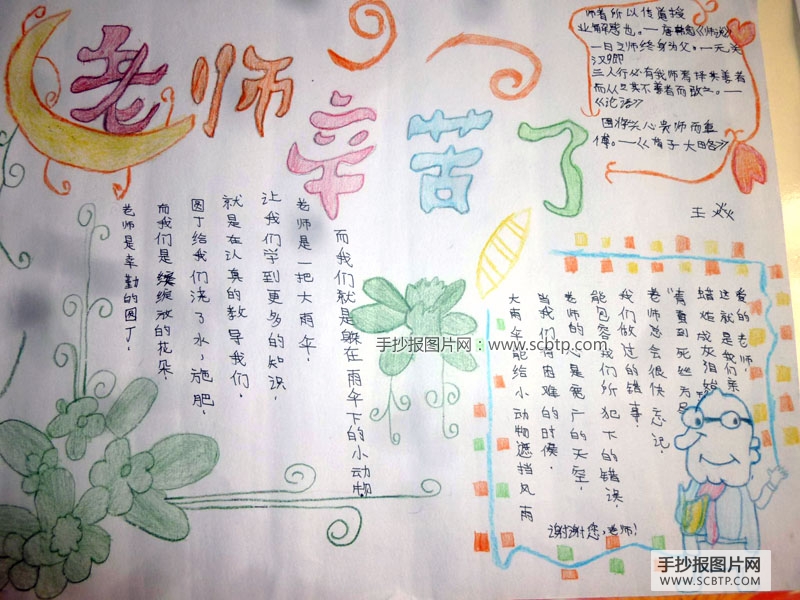 老师辛苦了
师者所以传道授
业解惑也。——唐韩愈《师说》
一日之师终身为父。—元关
汉卿
三人行必有我师焉择其善者
而从之其不善者而改之。——
《论语》
国将兴心贵师而重
傅。——《荀子 大略》
王焱
老师是辛勤的园丁，
而我们是绽放的花朵，
园丁给我们浇了水，施肥，
就是在认真的教导我们，
让我们学到更多的知识，
老师是一把大雨伞，
而我们就是躲在雨伞下的小动物，
大雨伞能给小动物遮挡风雨
当我们有困难的时候，
老师的心是宽广的天空，
能包容我们所犯下的错误，
我们做过的错事，
老师总会很快忘记，
“春蚕到死丝方尽
蜡炬成灰泪始
这就是我们亲
爱的老师，
谢谢您，老师！
手抄报图片网：www.scbtp.com
手抄报图片网
WWW.SCBTP.COM